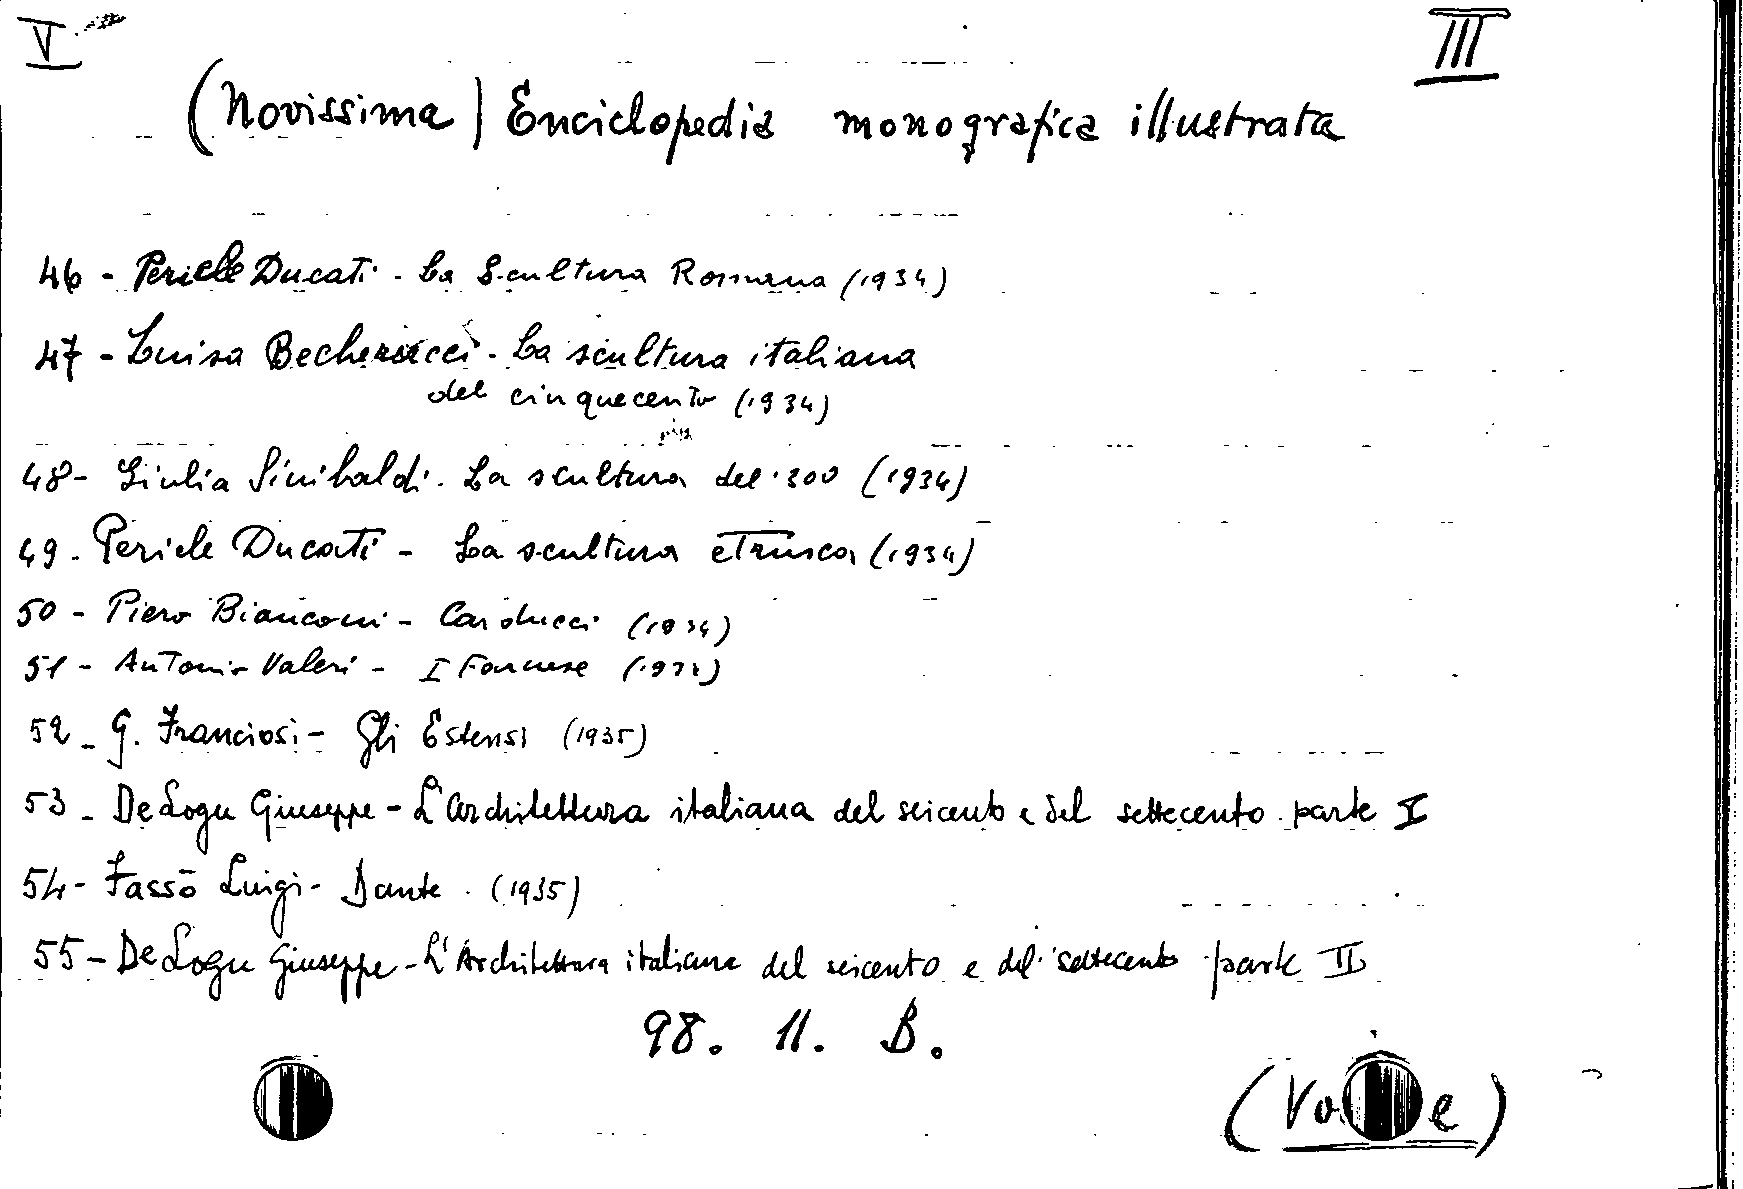 V III
(Novissima) Enciclopedia monografica illustrata
46 - Pericle Ducati - La Scultura Romana (1934)
47 - Luisa Becherucci - La scultura italiana
del cinquecento (1934)
48 - Giulia Sinibaldi - La scultura del 300 (1934)
49 - Pericle Ducati - La scultura etrusca (1934)
50 - Piero Bianconi - Carducci (1934)
51 - Antonio Valeri - I Farnese
52 - G. Franciosi - Gli Estensi (1935)
53 - De Logu Giuseppe - L'architettura italiana del seicento e del settecento parte I
54 - Fassò Luigi - Dante (1935)
55 - De Logu Giuseppe - L'Architettura italiana del seicento e del settecento parte II
98. 11. B.